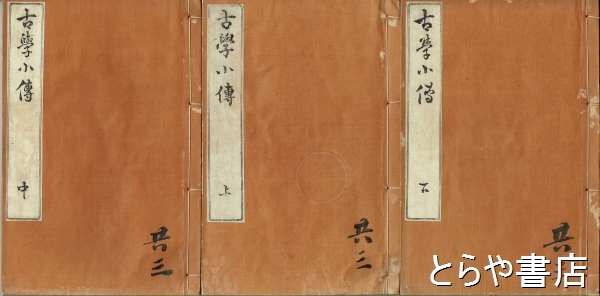 古學小傳
中
共三
古學小傳
上
共三
古學小傳
下
共
とらや書店